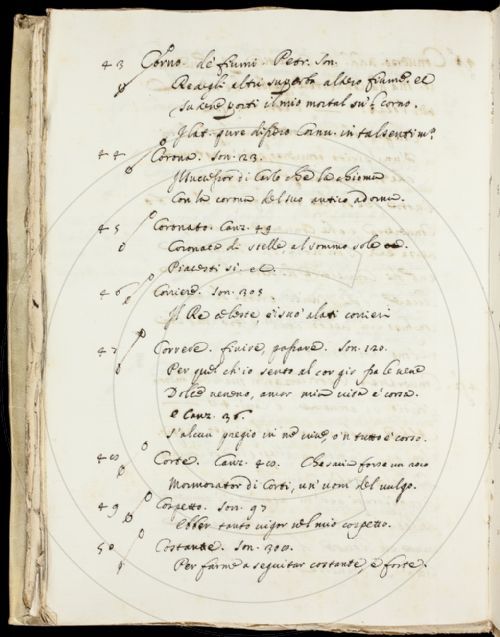 43 Corno. de' fiumi. Petr. Son.
Re degli altri superbo altero fiume. et
Su
porti il mio mortal sul corno.
Il lat. pure Cornu. in tal sentim.º
44 Corona. Son. 23.
che la chioma
Con la corona del suo antico adorna.
45 Coronato. Canz. 49
Coronata di stelle, al sommo sole
Piacesti sì. et
46 Corriere. Son. 303
Il Re celeste, e i suoi alati corrieri
47 Correre. finire, passare. Son. 120.
Per quel ch'io sento al cor gir fra le vene
Dolce veneno, amor mia vita è corsa.
e Canz. 36.
S'alcun pregio in me vive, o 'n tutto è corso.
48 Corte. Canz. 48. Che saria forse un roco
Mormorator di Corti, un' uom del vulgo.
49 Cospetto. Son. 97
Ebber tanto vigor nel mio cospetto.
50 Costante. Son. 300.
Per farme a seguitar costante, e forte.